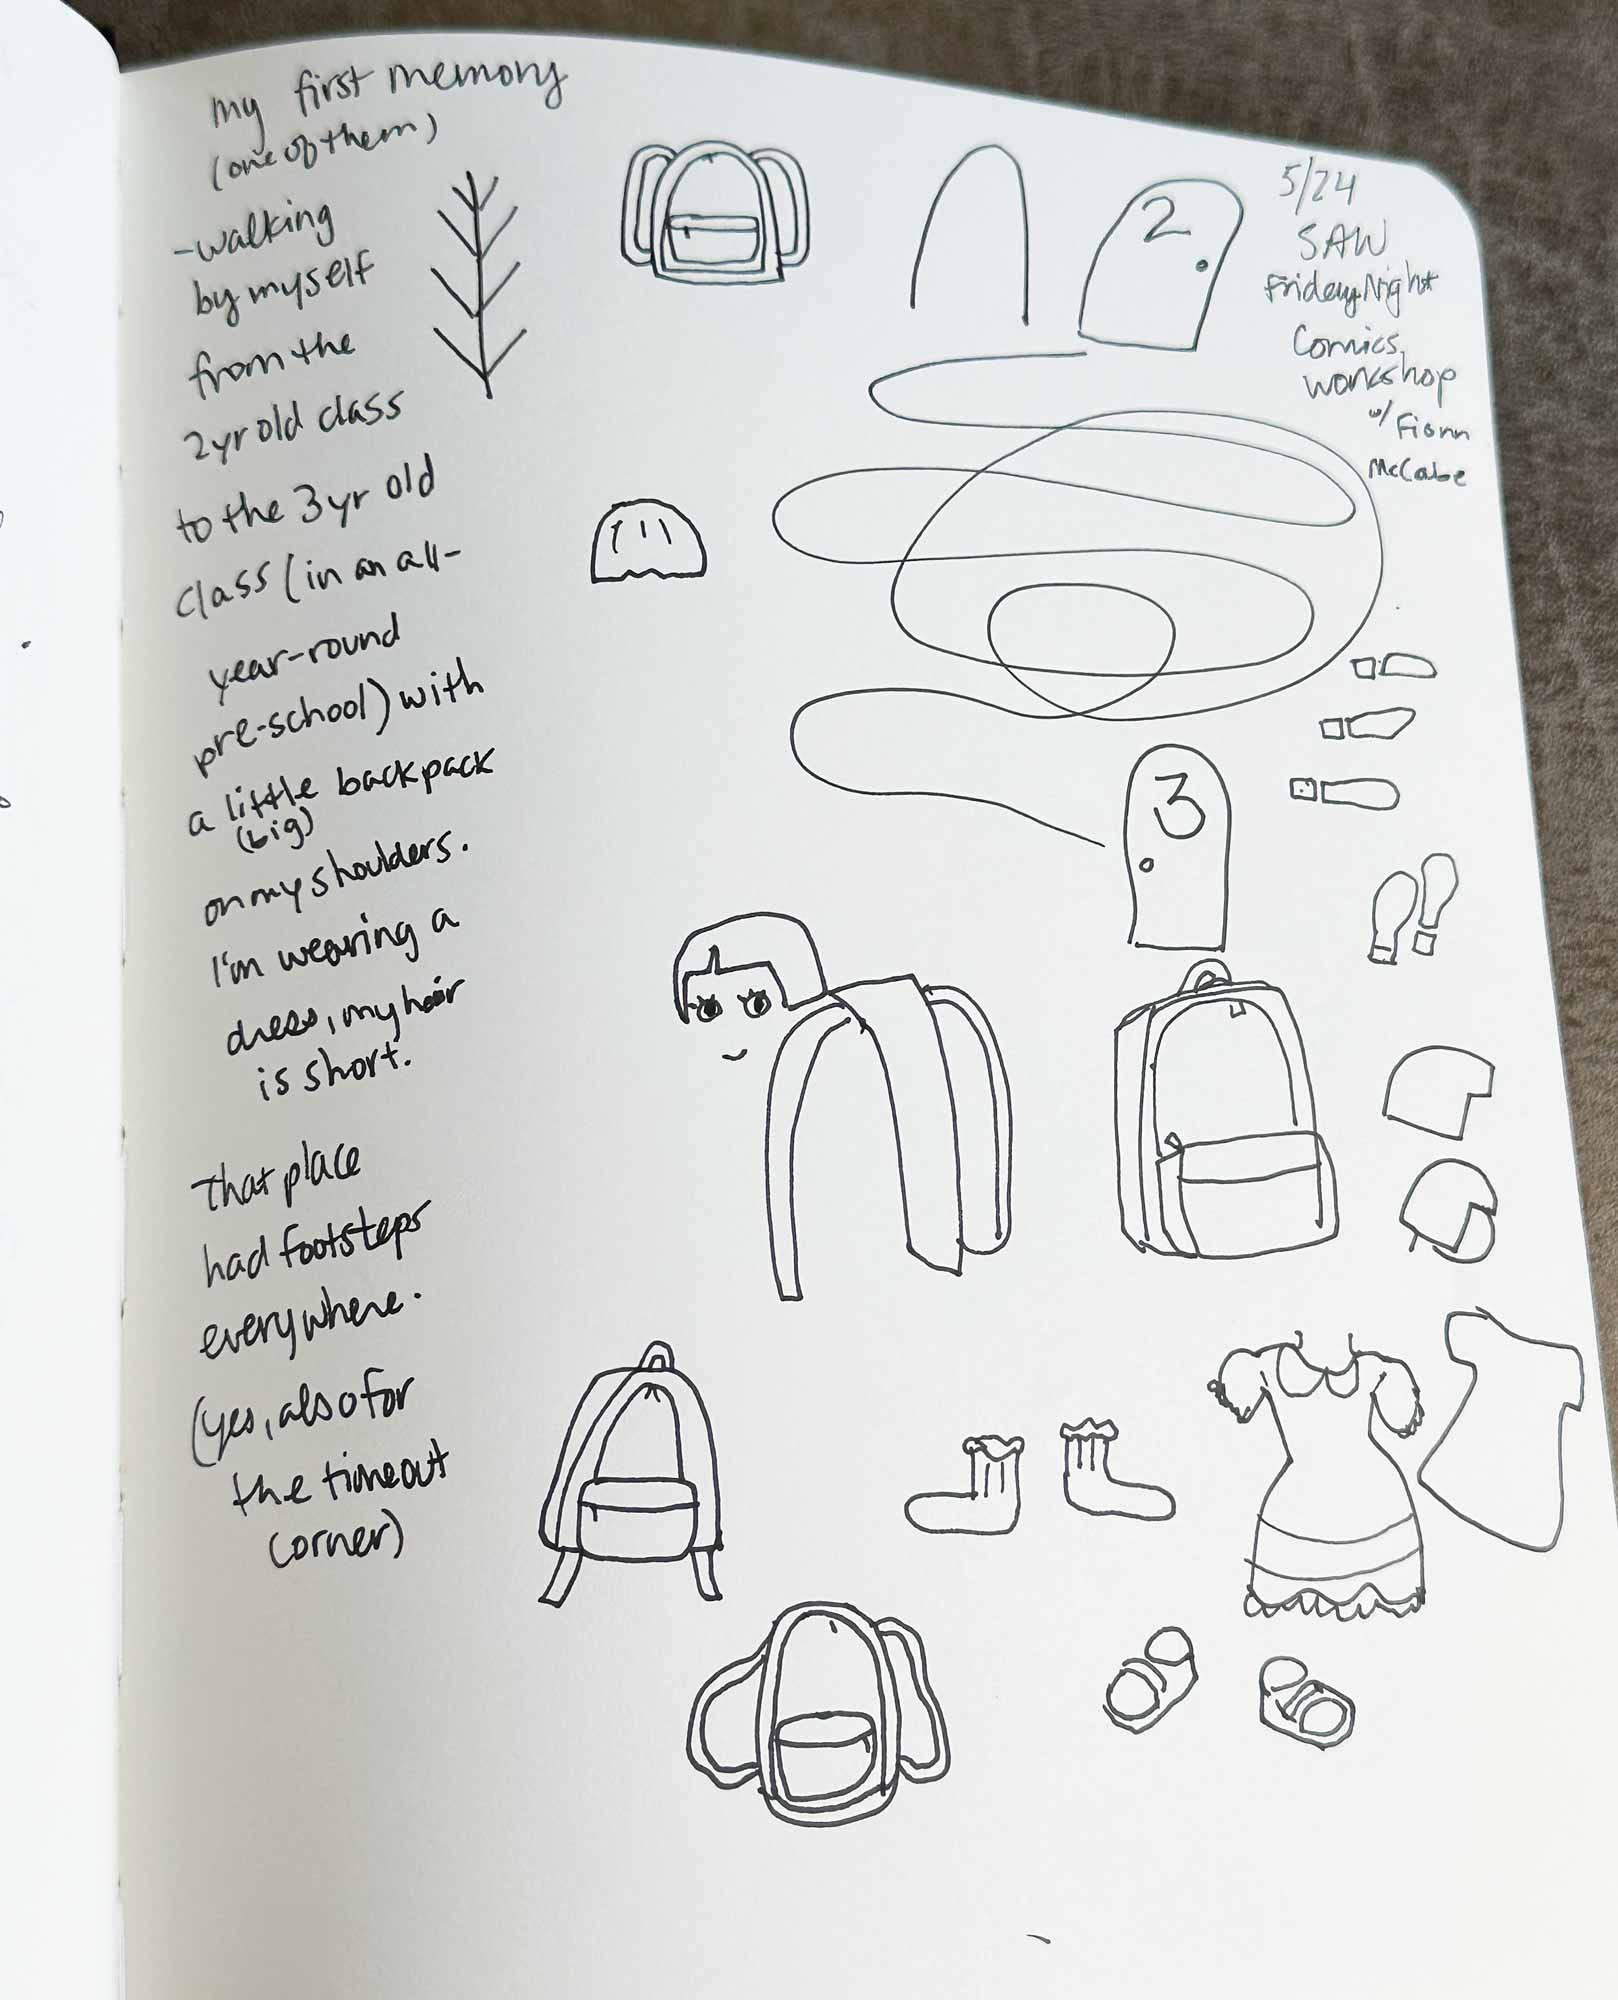 my first memory
(one of them)
-walking
by myself
from the
2yr old class
to the 3yr old
class (in an all-
year-round
pre-school) with
a little backpack
(big)
on my shoulders.
I'm wearing a
dress, my hair
is short.
That place
had footsteps
everywhere.
(yes, also for
the timeout
corner)
2
3
5/24
SAW
Friday Night
Comics
workshop
w/ Fionn
McCabe